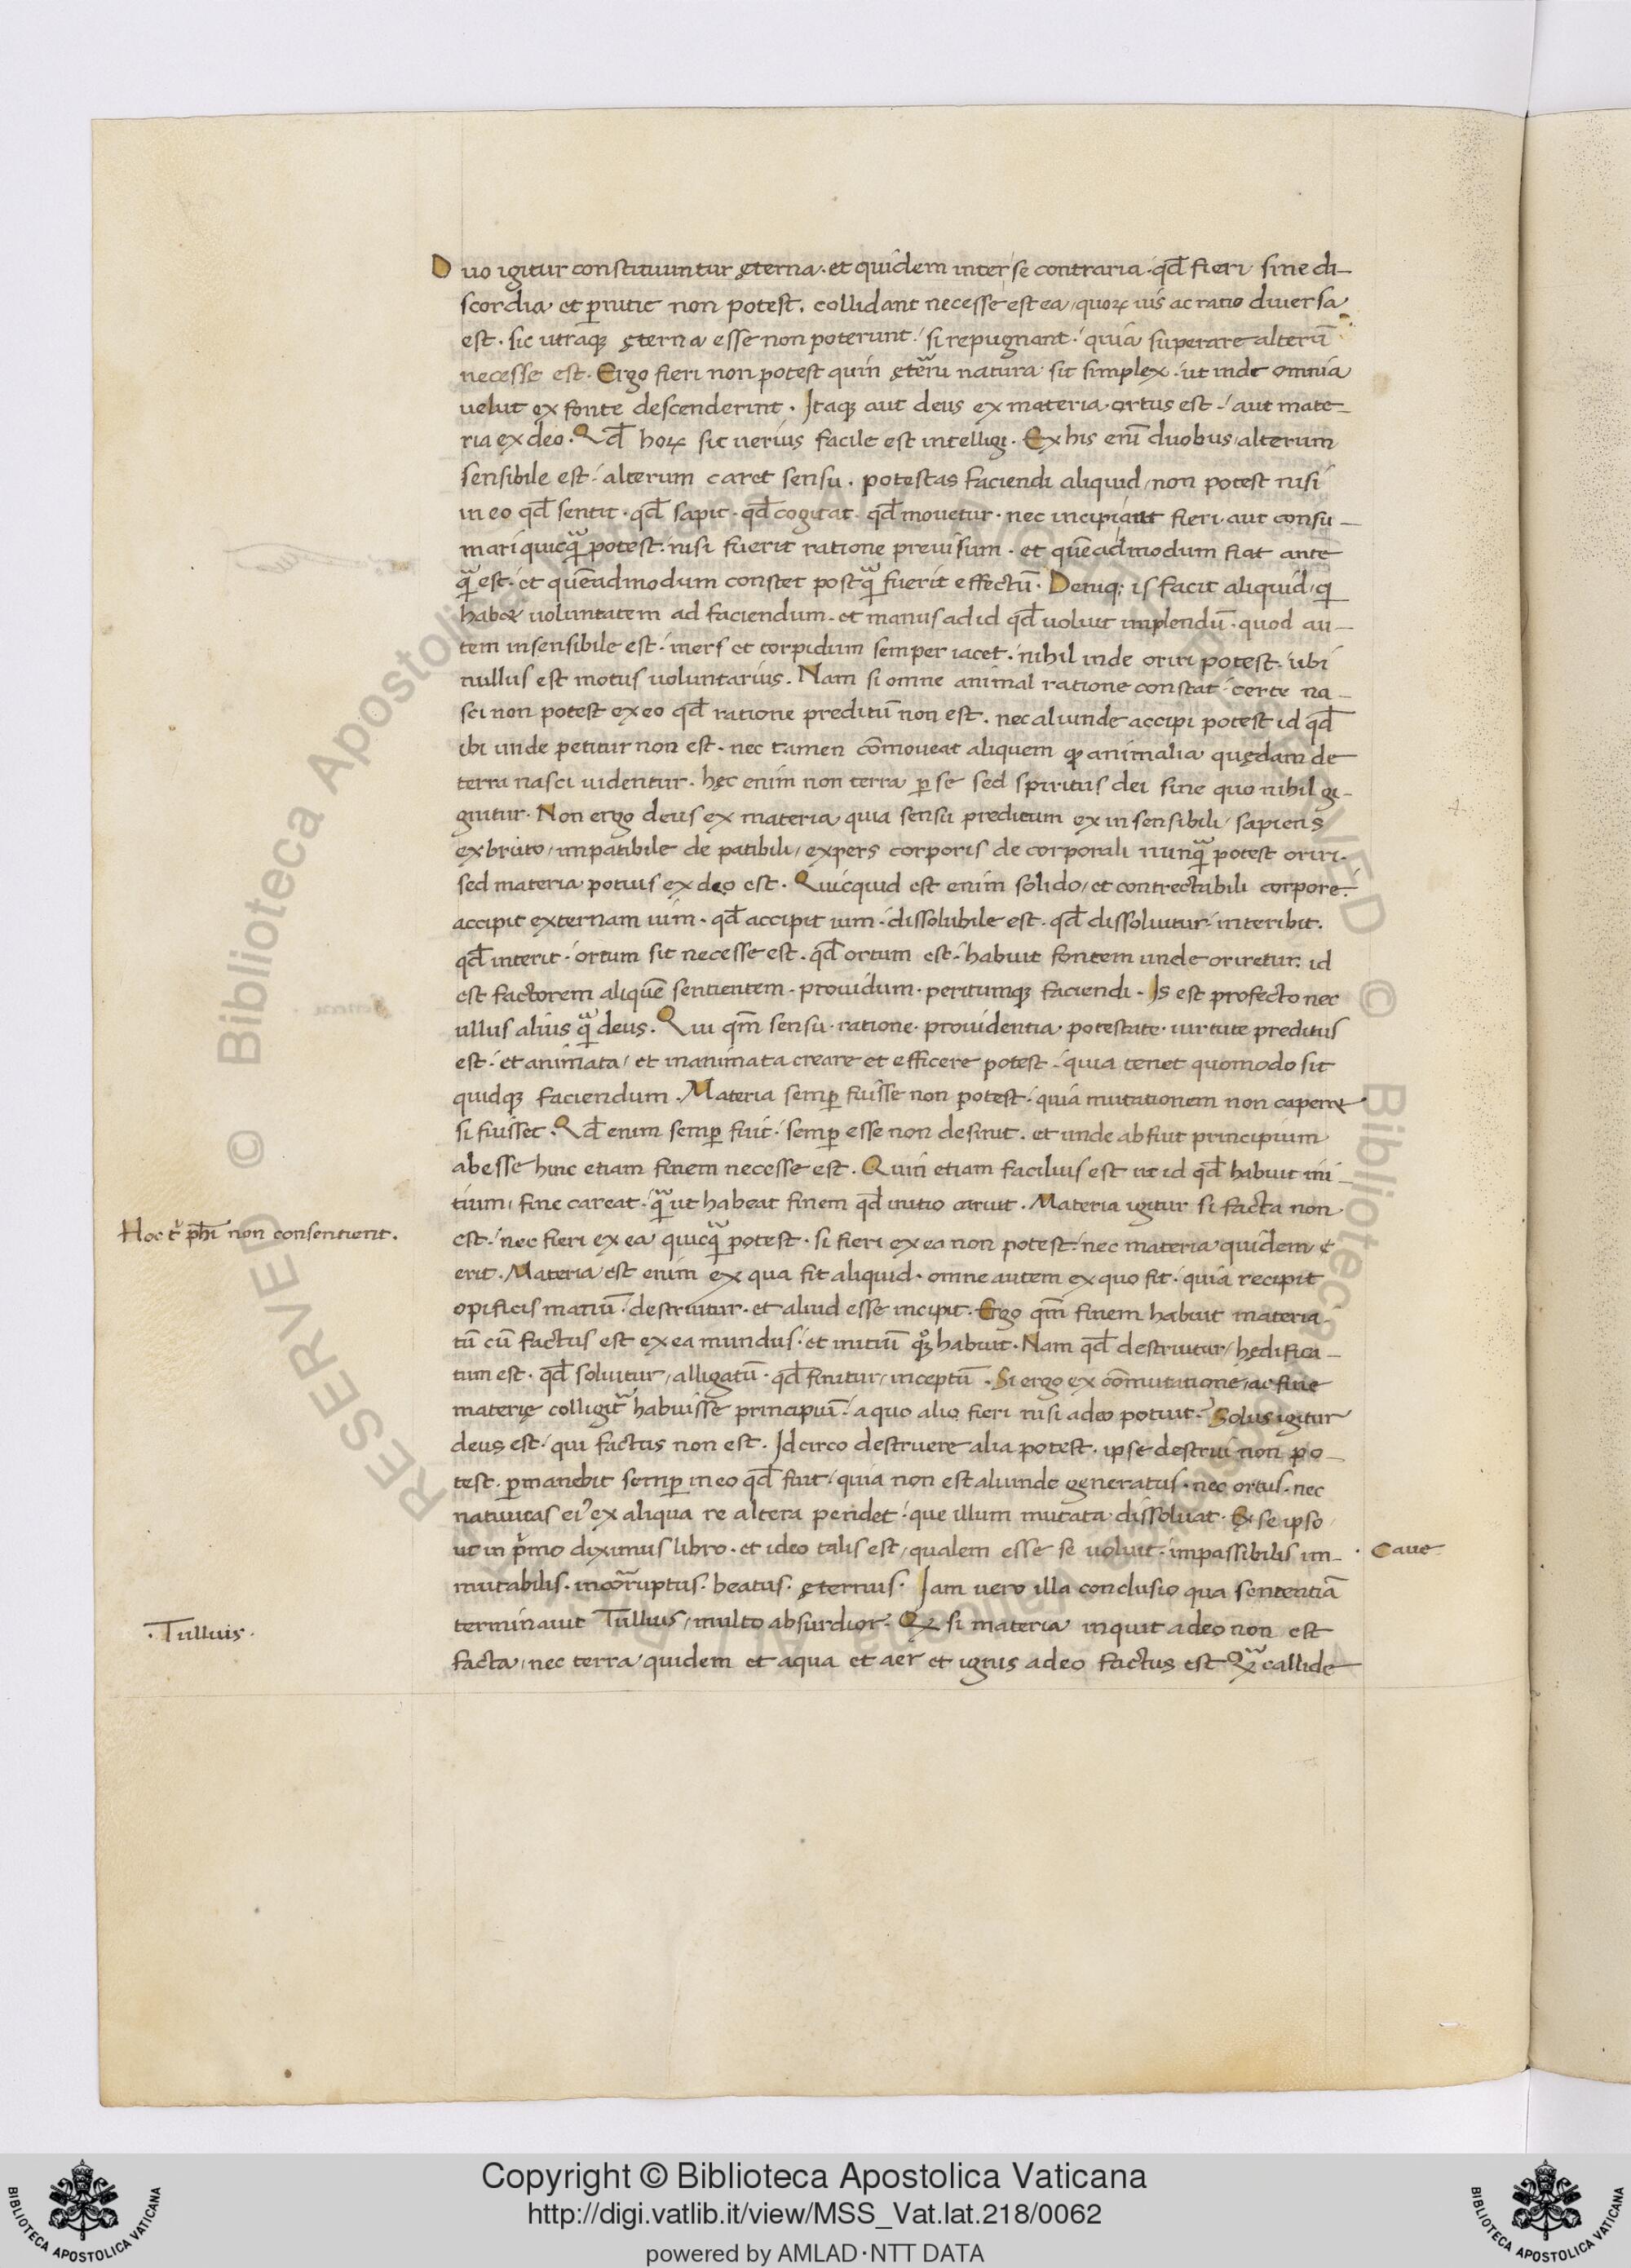 Duo igitur constituuntur ęterna. et quidem inter se contraria. qd̄ fieri sine di-
scordia et ꝑnitie non potest. collidant necesse est ea / quoꝝ uis ac ratio diuersa
est. sic utraqꝫ ęterna esse non poterunt / si repugnant. quia superare alterū
necesse est. Ergo fieri non potest quin ęterni natura sit simplex. ut inde omnia
uelut ex fonte descenderint. Itaqꝫ aut deus ex materia ortus est. aut mate-
ria ex deo. Qd̄ hoꝝ sit uerius facile est intelligi. Ex his eni duobus / alterum
sensibile est. alterum caret sensu. potestas faciendi aliquid / non potest nisi
in eo qd̄ sentit. qd̄ sapit. qd̄ cogitat. qd̄ mouetur. nec incipi aut fieri aut consu-
mari quicq̄ potest. nisi fuerit ratione preuisum. et quēadmodum fiat ante
q̄ est. et quēadmodum constet postq̄ fuerit effectū. Deniqꝫ is facit aliquid / qi
habet uoluntatem ad faciendum. et manus ad id qd̄ uoluit implendū. quod au-
tem insensibile est. iners et torpidum semper iacet. nihil inde oriri potest. ubi
nullus est motus uoluntarius. Nam si omne animal ratione constat. certe na-
sci non potest ex eo qd̄ ratione preditū non est. nec aliunde accipi potest id qd̄
ibi unde petitur non est. nec tamen cōmoueat aliquem ꝙ animalia quędam de
terra nasci uidentur. hęc enim non terra ꝑ se sed spiritus dei sine quo nihil gi-
gnitur. Non ergo deus ex materia quia sensu preditum ex insensibili / sapiens
ex bruto / impatibile de patibili / expers corporis de corporali nunq̄ potest oriri.
sed materia potius ex deo est. Quicquid est enim solido / et contrectabili corpore.
accipit externam uim. qd̄ accipit uim. dissolubile est. qd̄ dissoluitur. interibit.
qd̄ interit. ortum sit necesse est. qd̄ ortum est. habuit fontem unde oriretur. id
est factorem aliquē sentientem. prouidum. peritumqꝫ faciendi. Is est profecto nec
ullus alius q̄ deus. Qui qm̄ sensu. ratione. prouidentia. potestate. uirtute preditus
est. et animata / et inanimata creare et efficere potest. quia tenet quomodo sit
quidqꝫ faciendum. Materia semꝑ fuisse non potest. quia mutationem non caperet
si fuisset. Qd̄ enim semꝑ fuit. semꝑ esse non desinit. et unde abfuit principium
abesse hinc etiam finem necesse est. Quin etiam facilius est ut id qd̄ habuit ini-
tium / fine careat. q̄ ut habeat finem qd̄ initio caruit. Materia igitur si facta non
Hoc t͛ ph̄i non consentient.
est. nec fieri ex ea quicq̄ potest. si fieri ex ea non potest. nec materia quidem
erit. Materia est enim ex qua fit aliquid. omne autem ex quo fit. quia recipit
opificis manū. destruitur. et aliud esse incipit. Ergo qm̄ finem habuit materia
tū cū factus est ex ea mundus. et initiū qꝫ habuit. Nam qd̄ destruitur / hędifica-
tum est. qd̄ soluitur / alligatū. qd̄ finitur / inceptū. Si ergo ex cōmutatione / ac fine
materię colligitur habuisse principiū. a quo alio fieri nisi a deo potuit? Solus igitur
deus est. qui factus non est. Idcirco destruere alia potest. ipse destrui non po-
test. ꝑmanebit semꝑ in eo qd̄ fuit. quia non est aliunde generatus. nec ortus. nec
natiuitas ei9 ex aliqua re altera pendet. que illum mutata dissoluat. Ex se ipso
ut in p͛mo diximus libro. et ideo talis est / qualem esse se uoluit. impassibilis im-
. Caue
mutabilis. incorruptus. beatus. ęternus. Iam uero illa conclusio qua sententiā
.Tullius.
terminauit Tullius / multo absurdior. Qꝫ si materia inquit a deo non est
facta / nec terra quidem et aqua et aer et ignis a deo factus est. Q̄ callide
Copyright © Biblioteca Apostolica Vaticana
http://digi.vatlib.it/view/MSS_Vat.lat.218/0062
powered by AMLAD·NTT DATA
BIBLIOTECA APOSTOLICA VATICANA
BIBLIOTECA APOSTOLICA VATICANA